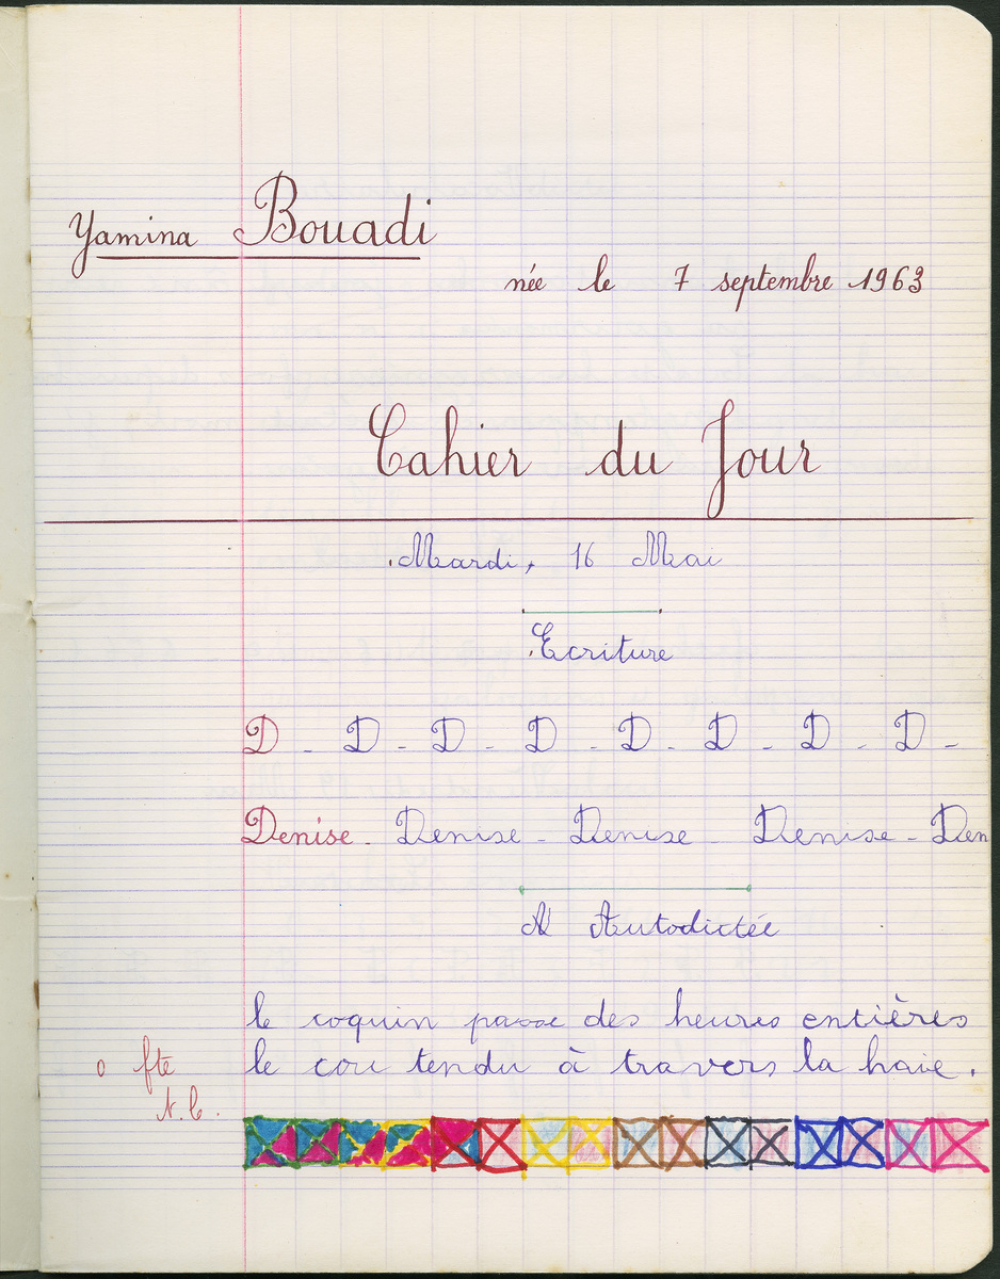 Yamina Bouadi
née le 7 septembre 1963
Cahier du Jour
Mardi, 16 Mai
Ecriture
D - D - D - D - D - D - D - D -
Denise - Denise - Denise - Denise - Den
Autodictée
le coquin passe des heures entières
0 fte le cou tendu à travers la haie.
t.b.